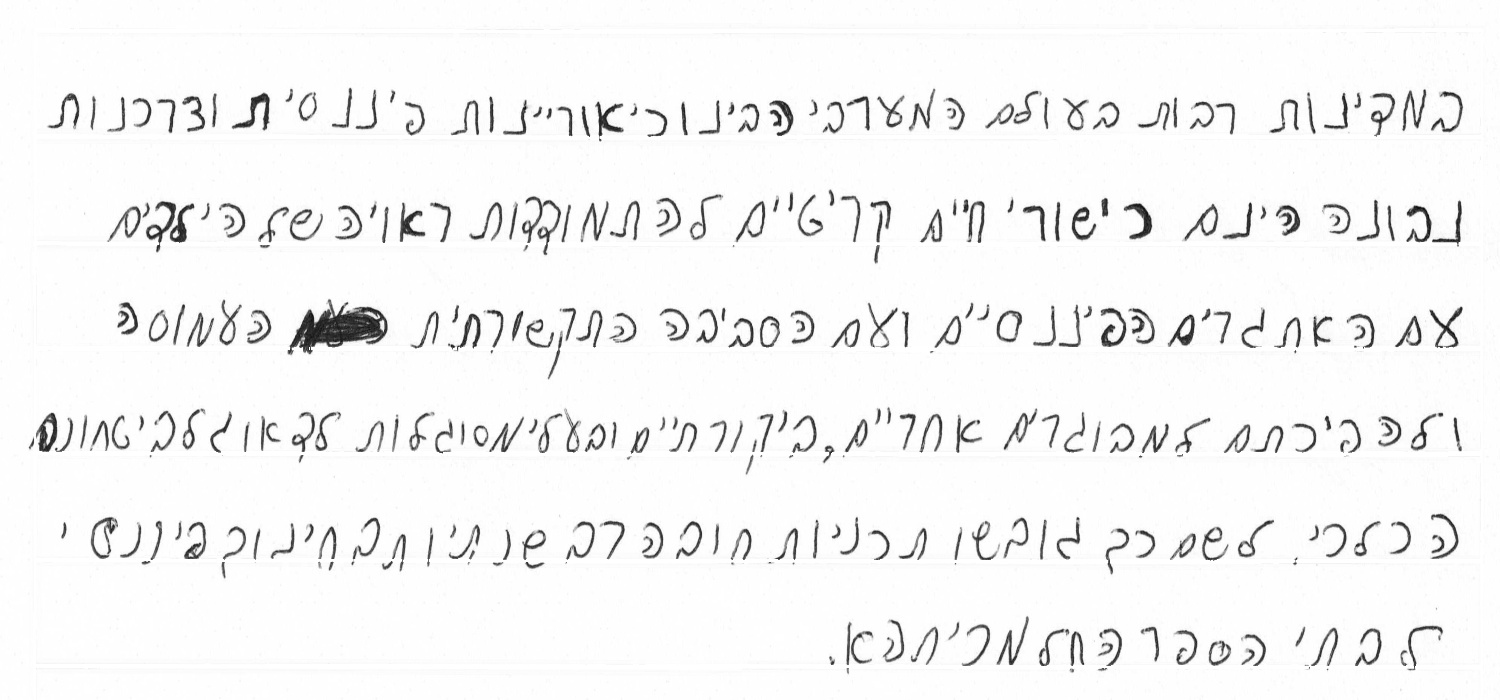 במדינות רבות בעולם המערבי הבינו כי אוריינות פיננסית וצרכנות
נבונה הינם כישורי חיים קריטיים להתמודדות ראויה של הילדים
עם האתגרים הפיננסיים ועם הסביבה התקשורתית העמוסה
ולהפיכתם למבוגרים אחריים, ביקורתיים ובעלי מסוגלות לדאוג לביטחונם
הכלכלי. לשם כך גובשו תכניות חובה רב שנתיות בחינוך פיננסי
לבתי הספר החל מכיתה א.